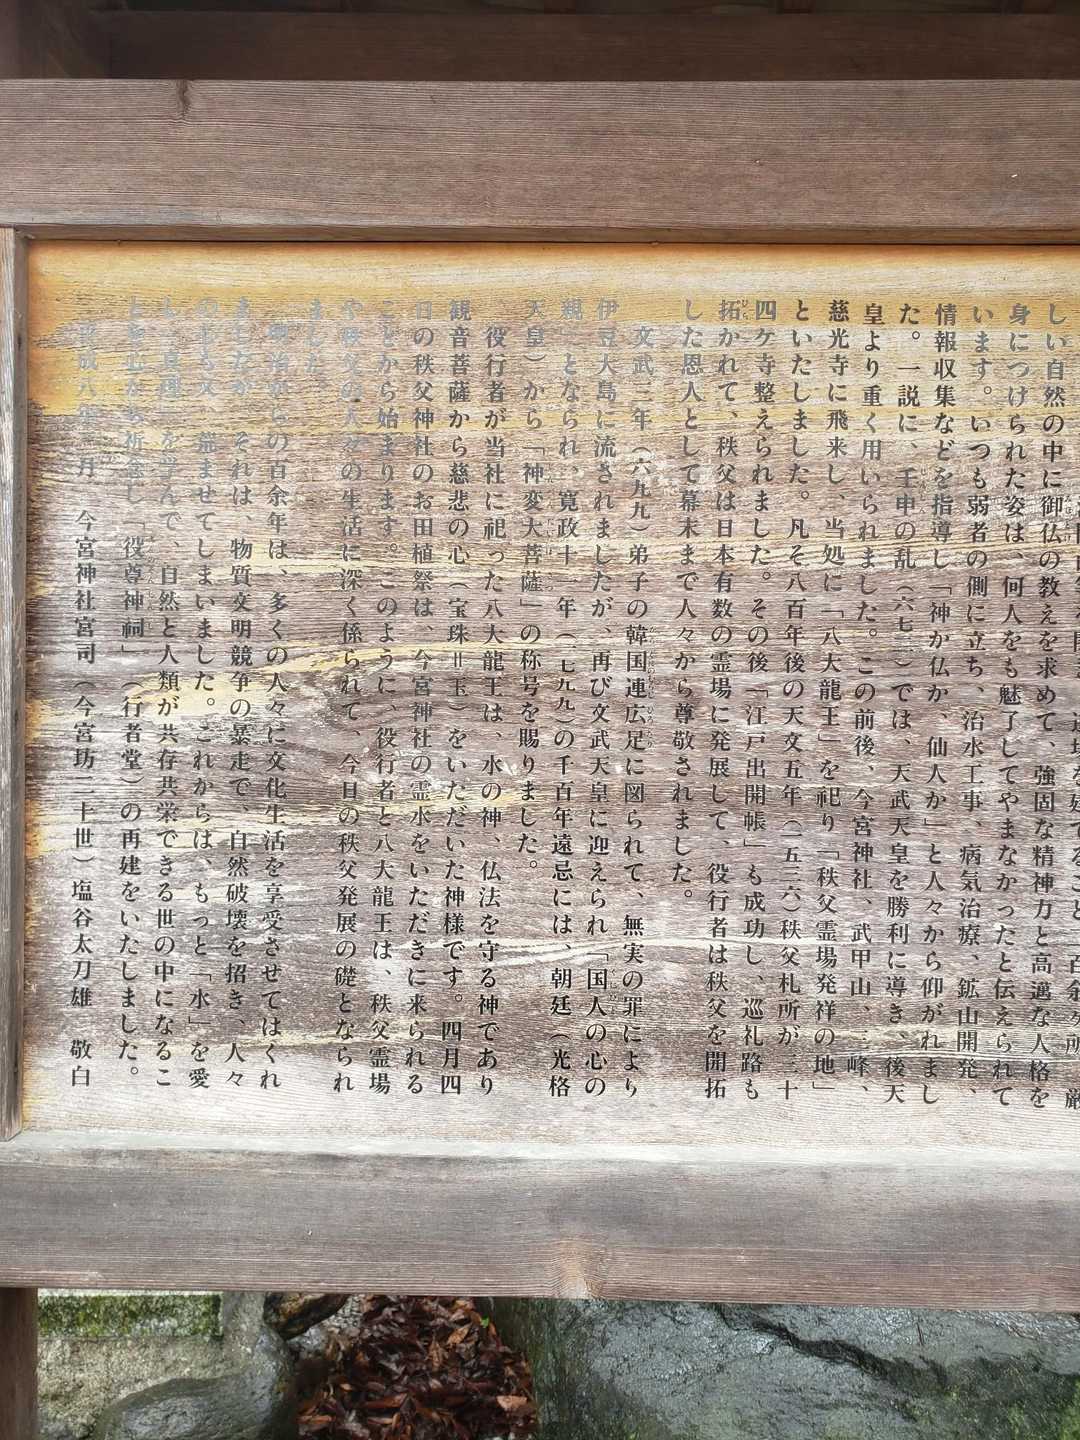 道場を建てること「百余ヶ所」、厳
しい自然の中に御仏の教えを求めて、強固な精神力と高邁な人格を
身につけられた姿は、何人をも魅了してやまなかったと伝えられて
います。いつも弱者の側に立ち、治水工事、病気治療、鉱山開発、
情報収集などを指導し「神か仏か、仙人か」と人々から仰がれまし
た。一説に、壬申の乱(六七二)では、天武天皇を勝利に導き、後天
皇より重く用いられました。この前後、今宮神社、武甲山、三峰、
慈光寺に飛来し、当処に「八大龍王」を祀り「秩父霊場発祥の地」
といたしました。凡そ八百年後の天文五年(一五三六)秩父札所が三十
四ケ寺整えられました。その後「江戸出開帳」も成功し、巡礼路も
拓かれて、秩父は日本有数の霊場に発展して、役行者は秩父を開拓
した恩人として幕末まで人々から尊敬されました。
文武二年(六九九)弟子の韓国連広足に図られて、無実の罪により
伊豆大島に流されましたが、再び文武天皇に迎えられ「国人の心の
親」となられ、寛政十一年(一七九九)の千百年遠忌には、朝廷(光格
天皇)から「神変大菩薩」の称号を賜りました。
役行者が当社に祀った八大龍王は、水の神、仏法を守る神であり
観音菩薩から慈悲の心(宝珠=玉)をいただいた神様です。四月四
日の秩父神社のお田植祭は、今宮神社の霊水をいただきに来られる
ことから始まります。このように、役行者と八大龍王は、秩父霊場
や秩父の人々の生活に深く係られて、今日の秩父発展の礎となられ
ました。
明治からの百余年は、多くの人々に文化生活を享受させてはくれ
ましたが、それは、物質文明競争の暴走で、自然破壊を招き、人々
の心も又、荒ませてしまいました。これからは、もっと「水」を愛
し、真理を学んで、自然と人類が共存共栄できる世の中になるこ
とを心から祈念し「役尊神祠」(行者堂)の再建をいたしました。
平成八年 月 今宮神社宮司(今宮坊二十世)塩谷太刀雄 敬白